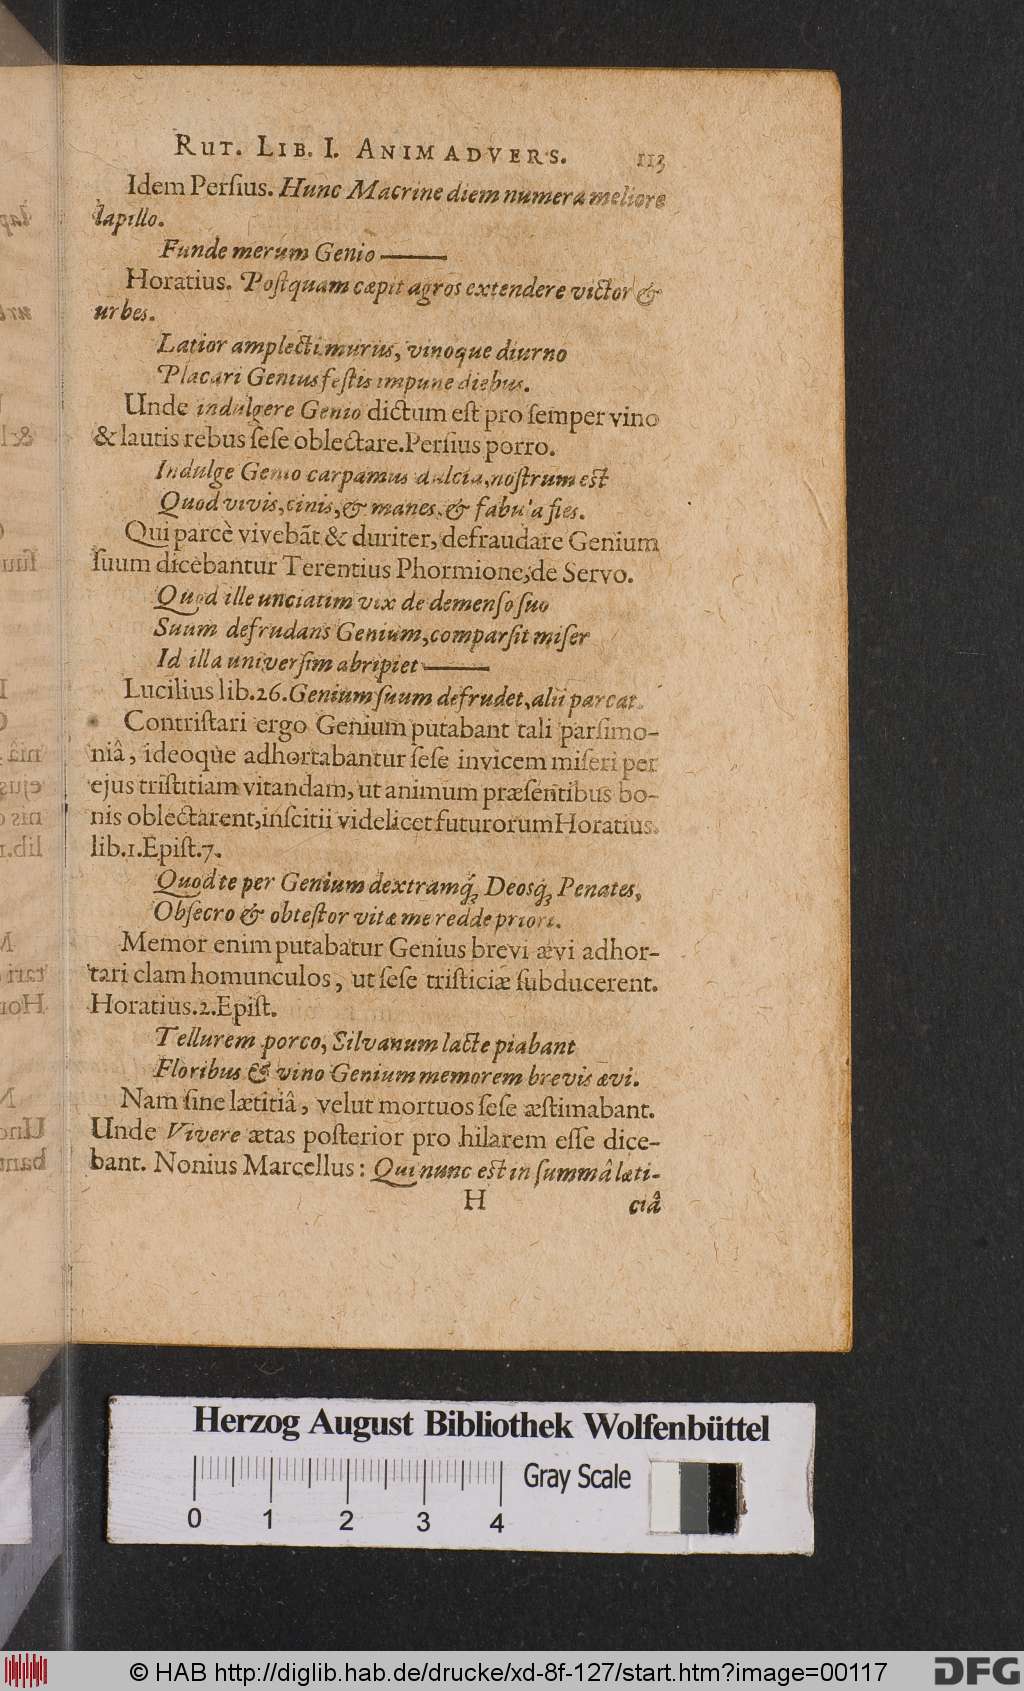 RUT. LIB. I. ANIMADVERS. 113
Idem Perſius. Hunc Macrine diem numera meliore
lapillo.
Funde merum Genio ———
Horatius. Poſtquam cæpit agros extendere victor &
urbes.
Latior amplecti murus, vinoque diurno
Placari Genius feſtis impune diebus.
Unde indulgere Genio dictum eſt pro ſemper vino
& lautis rebus ſeſe oblectare. Perſius porro.
Indulge Genio carpamus dulcia, noſtrum eſt
Quod vivis, cinis, & manes, & fabula fies.
Qui parcè vivebãt & duriter, defraudare Genium
ſuum dicebantur Terentius Phormione, de Servo.
Quod ille unciatim vix de demenſo ſuo
Suum defrudans Genium, comparſit miſer
Id illa univerſim abripiet ———
Lucilius lib. 26. Genium ſuum defrudet, alii parcat.
Contriſtari ergo Genium putabant tali parſimo-
niâ, ideoque adhortabantur ſeſe invicem miſeri per
ejus triſtitiam vitandam, ut animum præſentibus bo-
nis oblectarent, inſcitii videlicet futurorum Horatius.
lib. 1. Epiſt. 7.
Quod te per Genium dextramq́;, Deosq́; Penates,
Obſecro & obteſtor vitæ me redde priori.
Memor enim putabatur Genius brevi ævi adhor-
tari clam homunculos, ut ſeſe triſticiæ ſubducerent.
Horatius. 2. Epiſt.
Tellurem porco, Silvanum lacte piabant
Floribus & vino Genium memorem brevis ævi.
Nam ſine lætitiâ, velut mortuos ſeſe æſtimabant.
Unde Vivere ætas poſterior pro hilarem eſſe dice-
bant. Nonius Marcellus: Qui nunc eſt in ſummâ læti-
H ciâ
Herzog August Bibliothek Wolfenbüttel
Gray Scale
0 1 2 3 4
© HAB http://diglib.hab.de/drucke/xd-8f-127/start.htm?image=00117 DFG